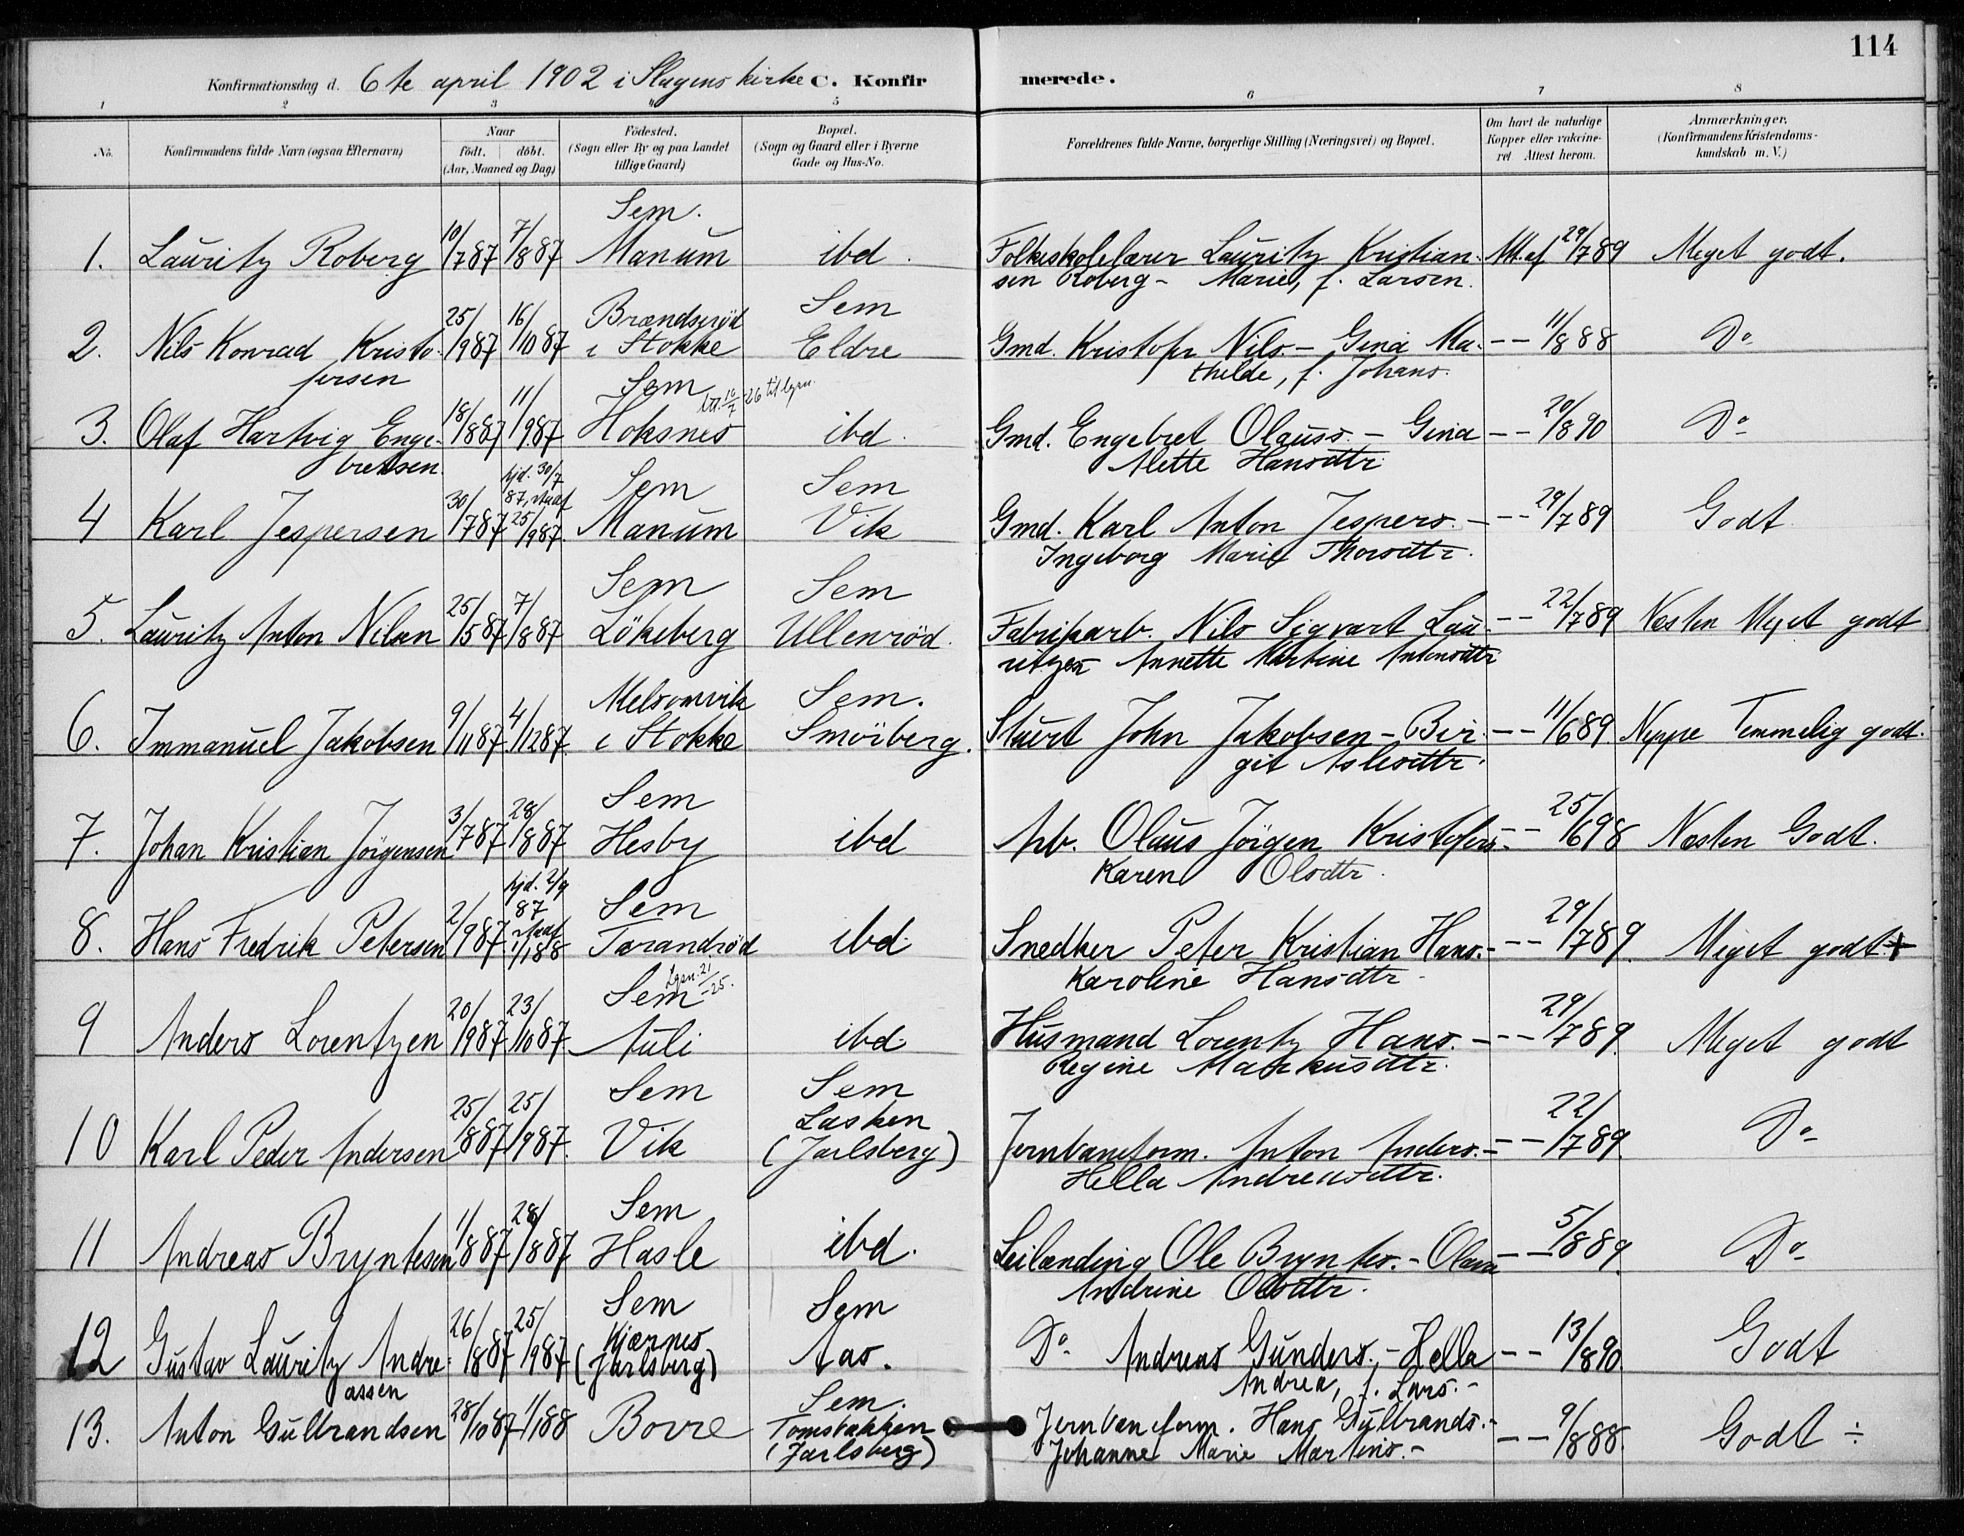 114
Konfirmationsdag d. 6te april 1902 i Slagens kirke C. Konfirmerede.
1 2 3 4 5 6 7 8
No. Konfirmandens fulde Navn (ogsaa Efternavn) Naar født. døbt. (Aar, Maaned og Dag) Fødested. (Sogn eller By og paa Landet tillige Gaard) Bopæl. (Sogn og Gaard eller i Byerne Gade og Hus-No. Forældrenes fulde Navne, borgerlige Stilling (Næringsvei) og Bopæl. Om havt de naturlige Kopper eller vakcineret Attest herom. Anmærkninger. (Konfirmandens Kristendomskundskab m. V.)
Sem.
1. Lauritz Roberg 10/7 87 7/8 87 Manum ibd. Folkeskolelærer Lauritz Kristian- Att. af 29/7 89 Meget godt.
sen Roberg - Marie, f. Larsen.
Brændsrød Sem
2. Nils Konrad Kristo- 25/9 87 16/10 87 i Stokke Eldre Gmd. Kristofer Nils. - Gina Ma- - - 11/8 88 Do
fersen thilde, f. Johans.
Sem
3. Olaf Hartvig Enge- 18/8 87 11/9 87 Hoksnes ibd. Gmd. Engebret Olauss. - Gina - - 20/8 90 Do
bretsen Alette Hansdtr.
hjd. 30/7 87, Sem Sem
4 Karl Jespersen 30/7 87 25/9 87. Manum Vik Gmd. Karl Anton Jespers. - - - 29/7 89 Godt
Ingeborg Marie Thorsdtr.
Sem Sem
5. Lauritz Anton Nilsen 25/5 87 7/8 87 Lökeberg Ullenröd. Fabrikarb. Nils Sigvart Lau- - - 22/7 89 Næsten Meget godt
ritzen Annette Martine Antonsdtr
Melsomvik Sem.
6. Immanuel Jakobsen 9/11 87 4/12 87 i Stokke Smöiberg. Stuert John Jakobsen - Bir- - - 11/6 89 Neppe Temmelig godt.
git Aslesdtr.
Sem
7. Johan Kristian Jörgensen 3/7 87 28/8 87 Hesby ibd Arb. Olaus Jörgen Kristofers. - - 25/6 98 Næsten Godt.
Karen Olsdtr.
hjd. 2/9 87 Sem
8. Hans Fredrik Petersen 2/9 87 1/1 88 Tarandrød ibd. Snedker Peter Kristian Hans. - - - 29/7 89. Meget godt +
Karoline Hansdtr.
Sem
9 Anders Lorentzen 20/9 87 23/10 87 Auli ibd. Husmand Lorentz Hans. - - - 29/7 89. Meget godt
Regine Markusdtr.
Sem Sem
Lasken
10 Karl Peder Andersen 25/8 87 25/9 87. Vik (Jarlsberg) Jernbaneform. Anton Anders. - - - 22/7 89. Do
Hella Andreasdtr.
Sem
11 Andreas Bryntesen 1/8 87 28/8 87 Hasle ibd. Leilænding Ole Bryntes. - Olava - - 5/8 89. Do
Andrine Olsdtr.
Sem Sem
Kjærnes
12 Gustav Lauritz Andre- 26/8 87 25/9 87 (Jarlsberg) Aas. Do Andreas Gunders. - Hella - - 13/8 90 Godt
assen Andrea, f. Lars. -
Sem.
13. Anton Gulbrandsen 28/10 87 1/1 88 Borre Tomsbakken Jernbaneform. Hans Gulbrands. -
(Jarlsberg) Johanne Marie Martins. - - - 9/8 88. Godt ÷